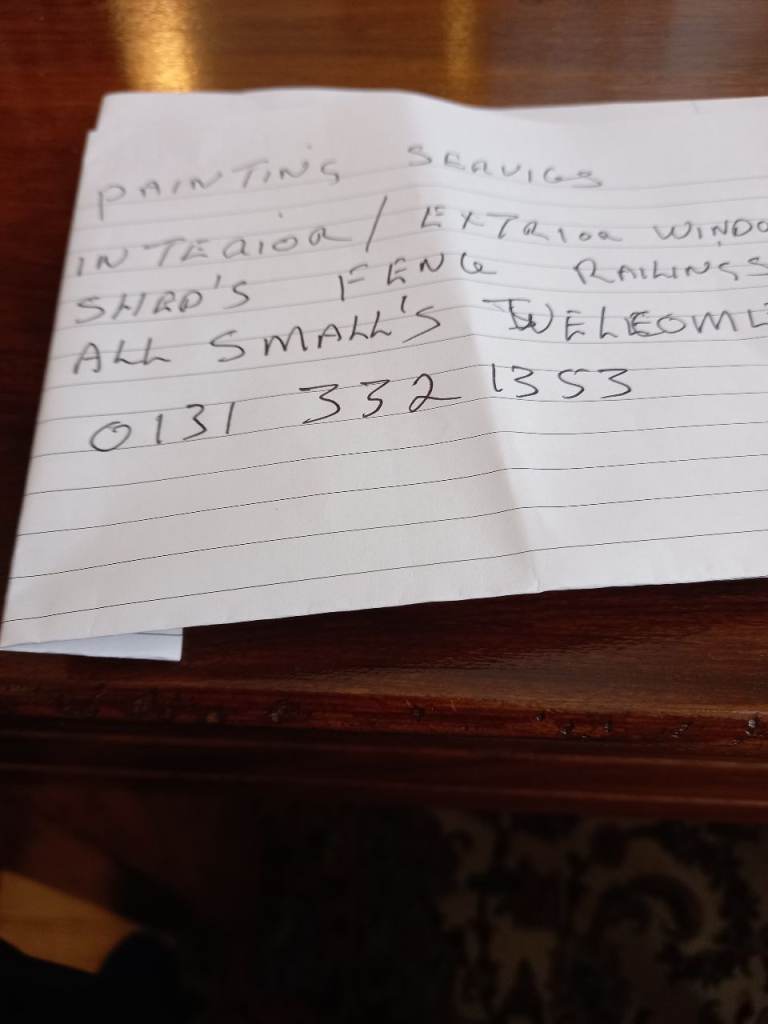 PAINTING SERVICES
INTERIOR / EXTRIOR WINDO
SHED'S FENCE RAILINGS
ALL SMALL'S WELCOME
0131 332 1353